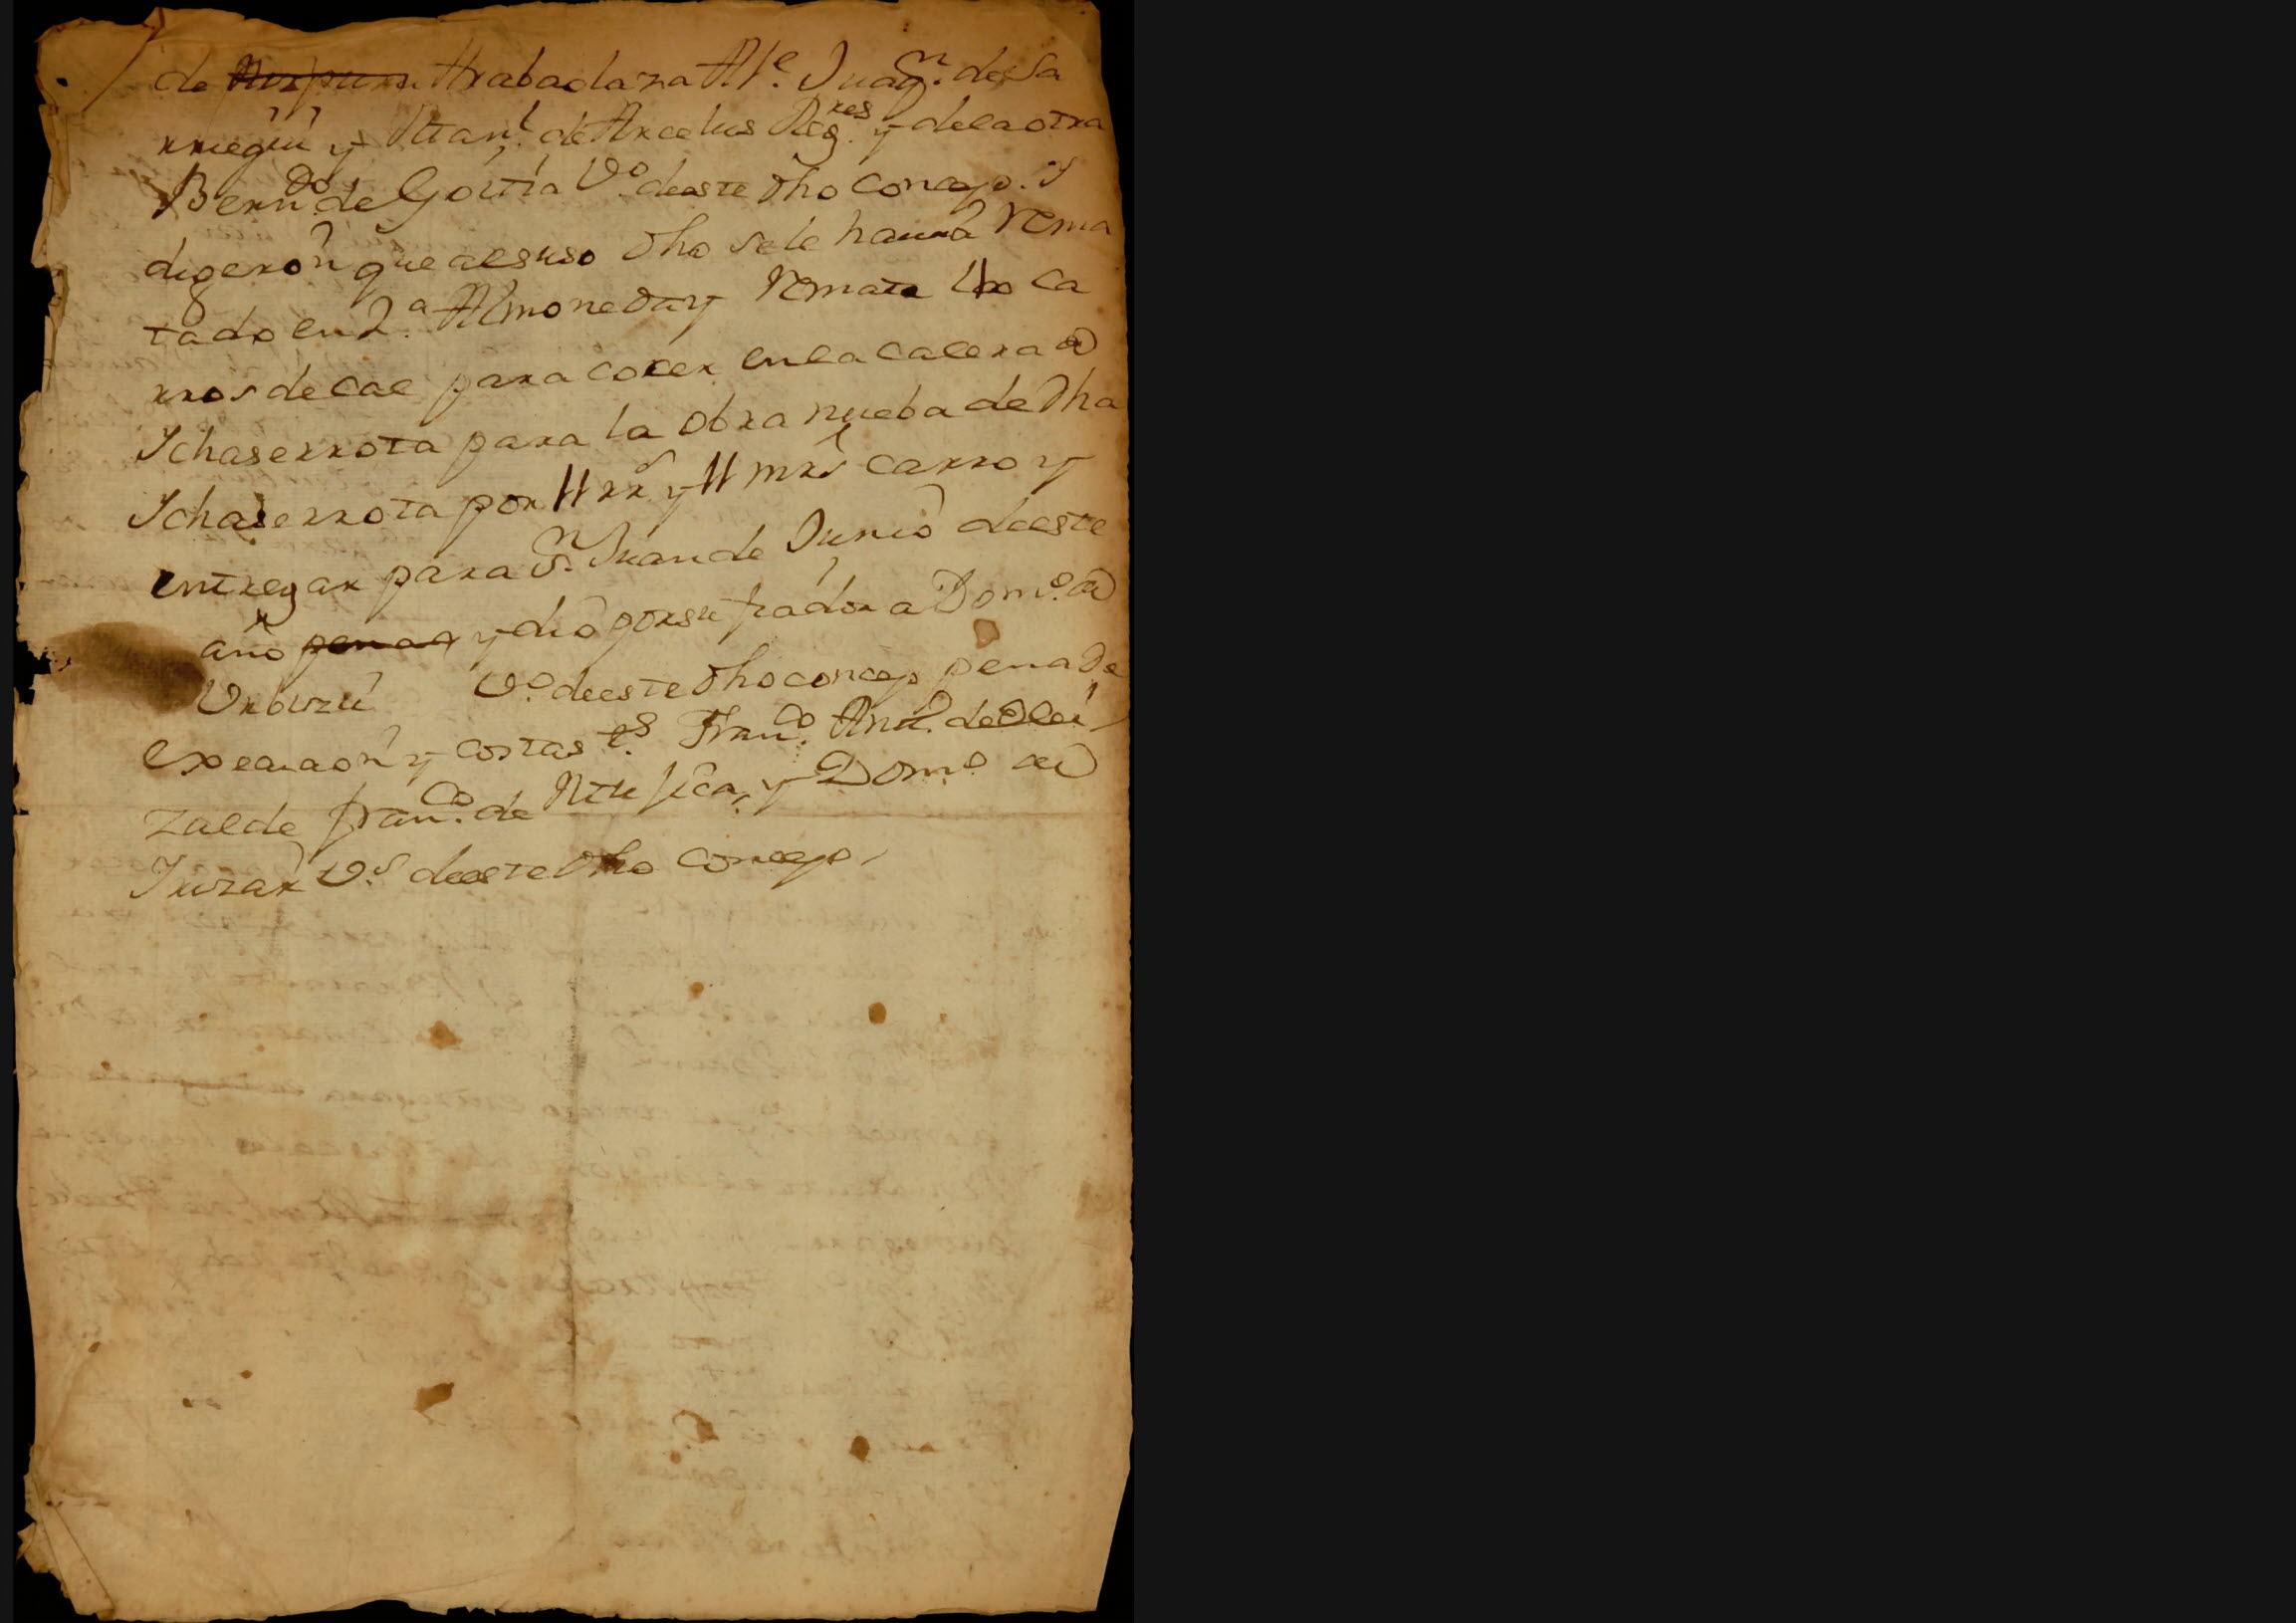 de Arabaolaza Ale. Juaqn. de Sa
rriegui y Manl. de Arcelus Regres. y de la otra
Berndo. de Goitia Vo. de este dho concejo. Y
digeron que al suso dho se le havia rema
tado en 2.a Almoneda y remate 40 ca
rros de cal para cocer en la calera de
Ichaserrota para la obra nueba de dha
Ichaserrota por 11 rrs y 11 mrs carro y
entregar para Sn. Juan de Junio de este
año y dió por su fiador a Domo. de
Urbizu Vo. de este dho concejo pena de
execucion y costas ts. Franco. Anto. de Olei
zalde franco. de y Domo. de
Inzar Vs. de este dho concejo.